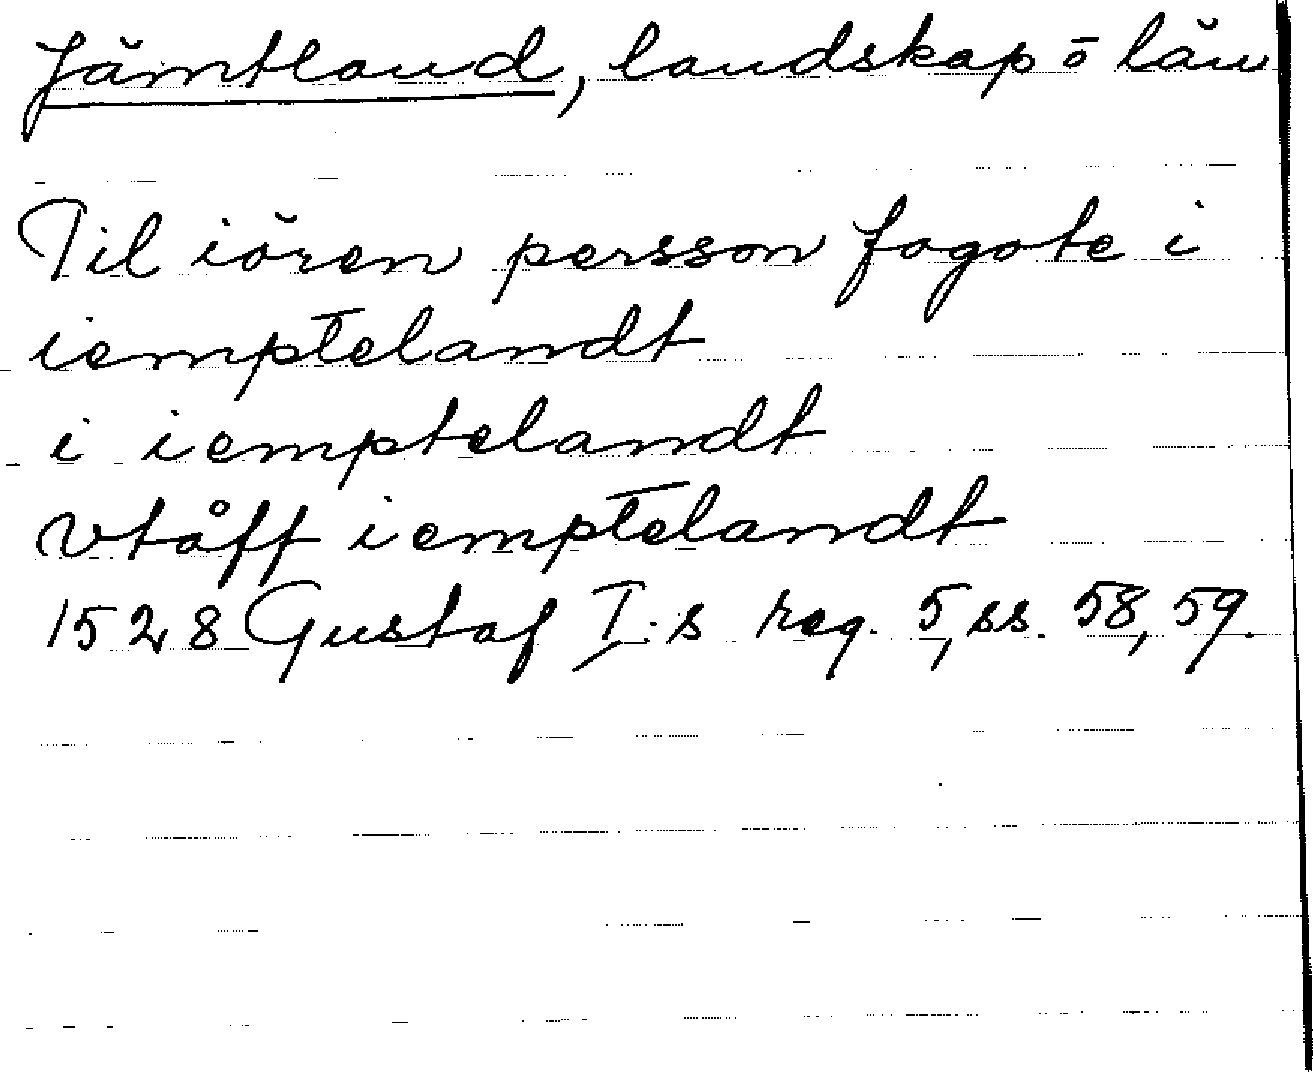 Jämtland, landskap o län
Til iören persson fogote i
iemptelandt
i iemptelandt
vtåff iemptelandt
1528 Gustaf I.s reg. 5, ss. 58, 59.